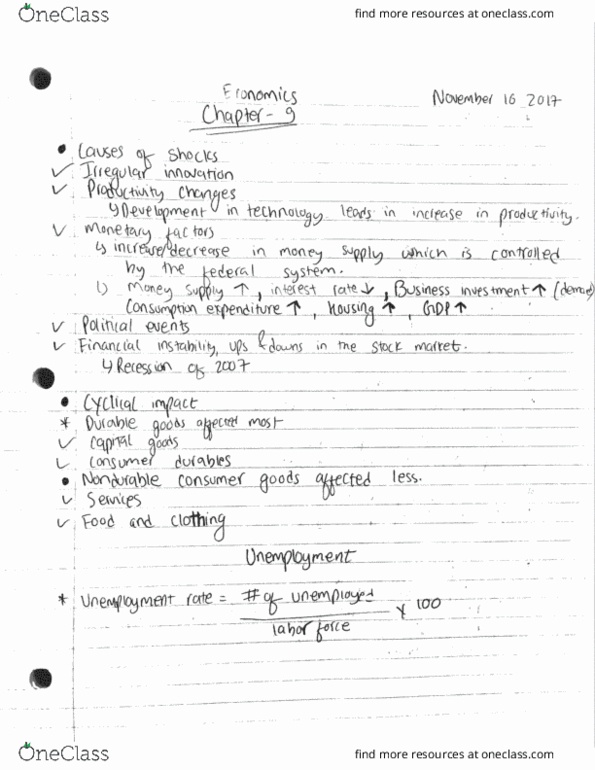 OneClass
find more resources at oneclass.com
Economics
Chapter - 9
November 16 2017
• Causes of shocks
✓ Irregular innovation
✓ Productivity changes
↳ Development in technology leads in increase in productivity.
✓ Monetary factors
↳ increase/decrease in money supply which is controlled
by the federal system.
↳ Money supply ↑, interest rate ↓, Business investment ↑ (demand)
Consumption expenditure ↑, housing ↑, GDP ↑
✓ Political events
✓ Financial instability, ups & downs in the stock market.
↳ Recession of 2007
• Cyclical impact
* Durable goods affected most
✓ Capital goods
✓ Consumer durables
• Nondurable consumer goods affected less.
✓ Services
✓ Food and clothing
Unemployment
* Unemployment rate = # of unemployed
x 100
labor force
OneClass
find more resources at oneclass.com